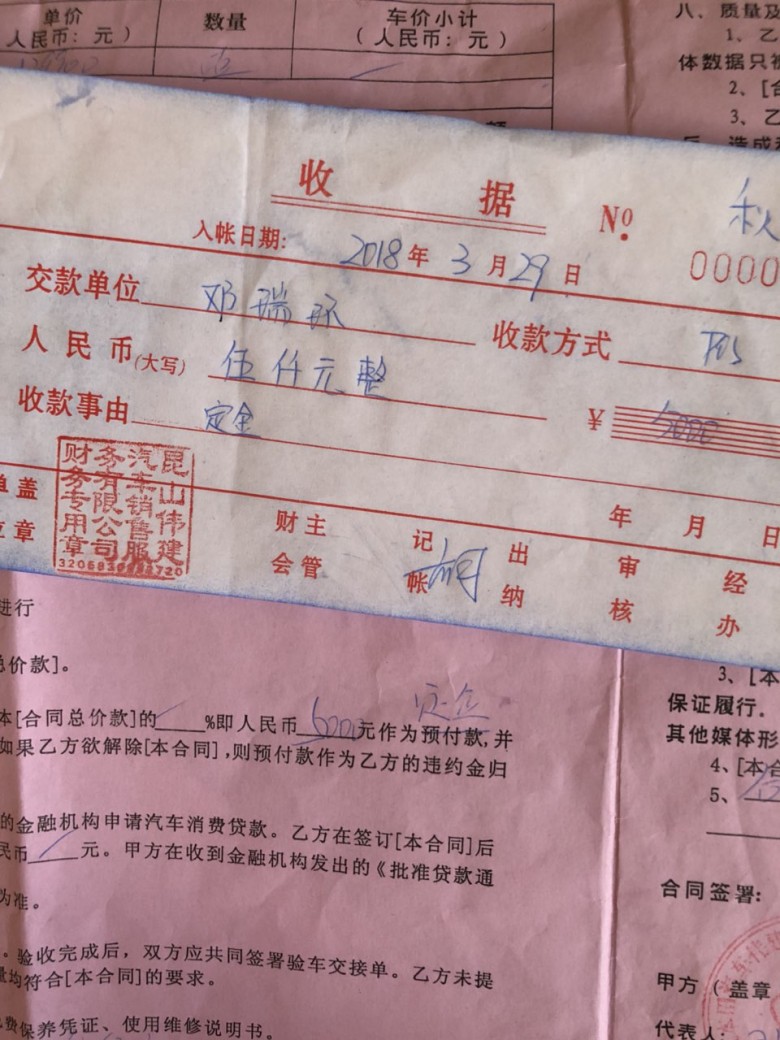 单价 数量 车价小计
人民币：元） （人民币：元）
八、质量及
1、乙
体数据只被
2、[合
3、乙
收 据 Nº
入帐日期： 2018年 3月29日 0000
交款单位 邓瑞环 收款方式
人民币(大写) 伍仟元整
收款事由 定金 ¥ 5000
昆山伟建
汽车销售服
务有限公司
财务专用章
盖 财主 记 出 年 月 日
章 会管 帐 纳 审核 经办
进行
总价款]。
本[合同总价款]的 %即人民币5000元作为预付款,并
定金
如果乙方欲解除[本合同],则预付款作为乙方的违约金归
的金融机构申请汽车消费贷款。乙方在签订[本合同]后
民币 元。甲方在收到金融机构发出的《批准贷款通
为准。
。验收完成后，双方应共同签署验车交接单。乙方未提
均符合[本合同]的要求。
保养凭证、使用维修说明书。
3、[本
保证履行.
其他媒体形
4、[本合
5、
合同签署:
甲方（盖章
代表人: